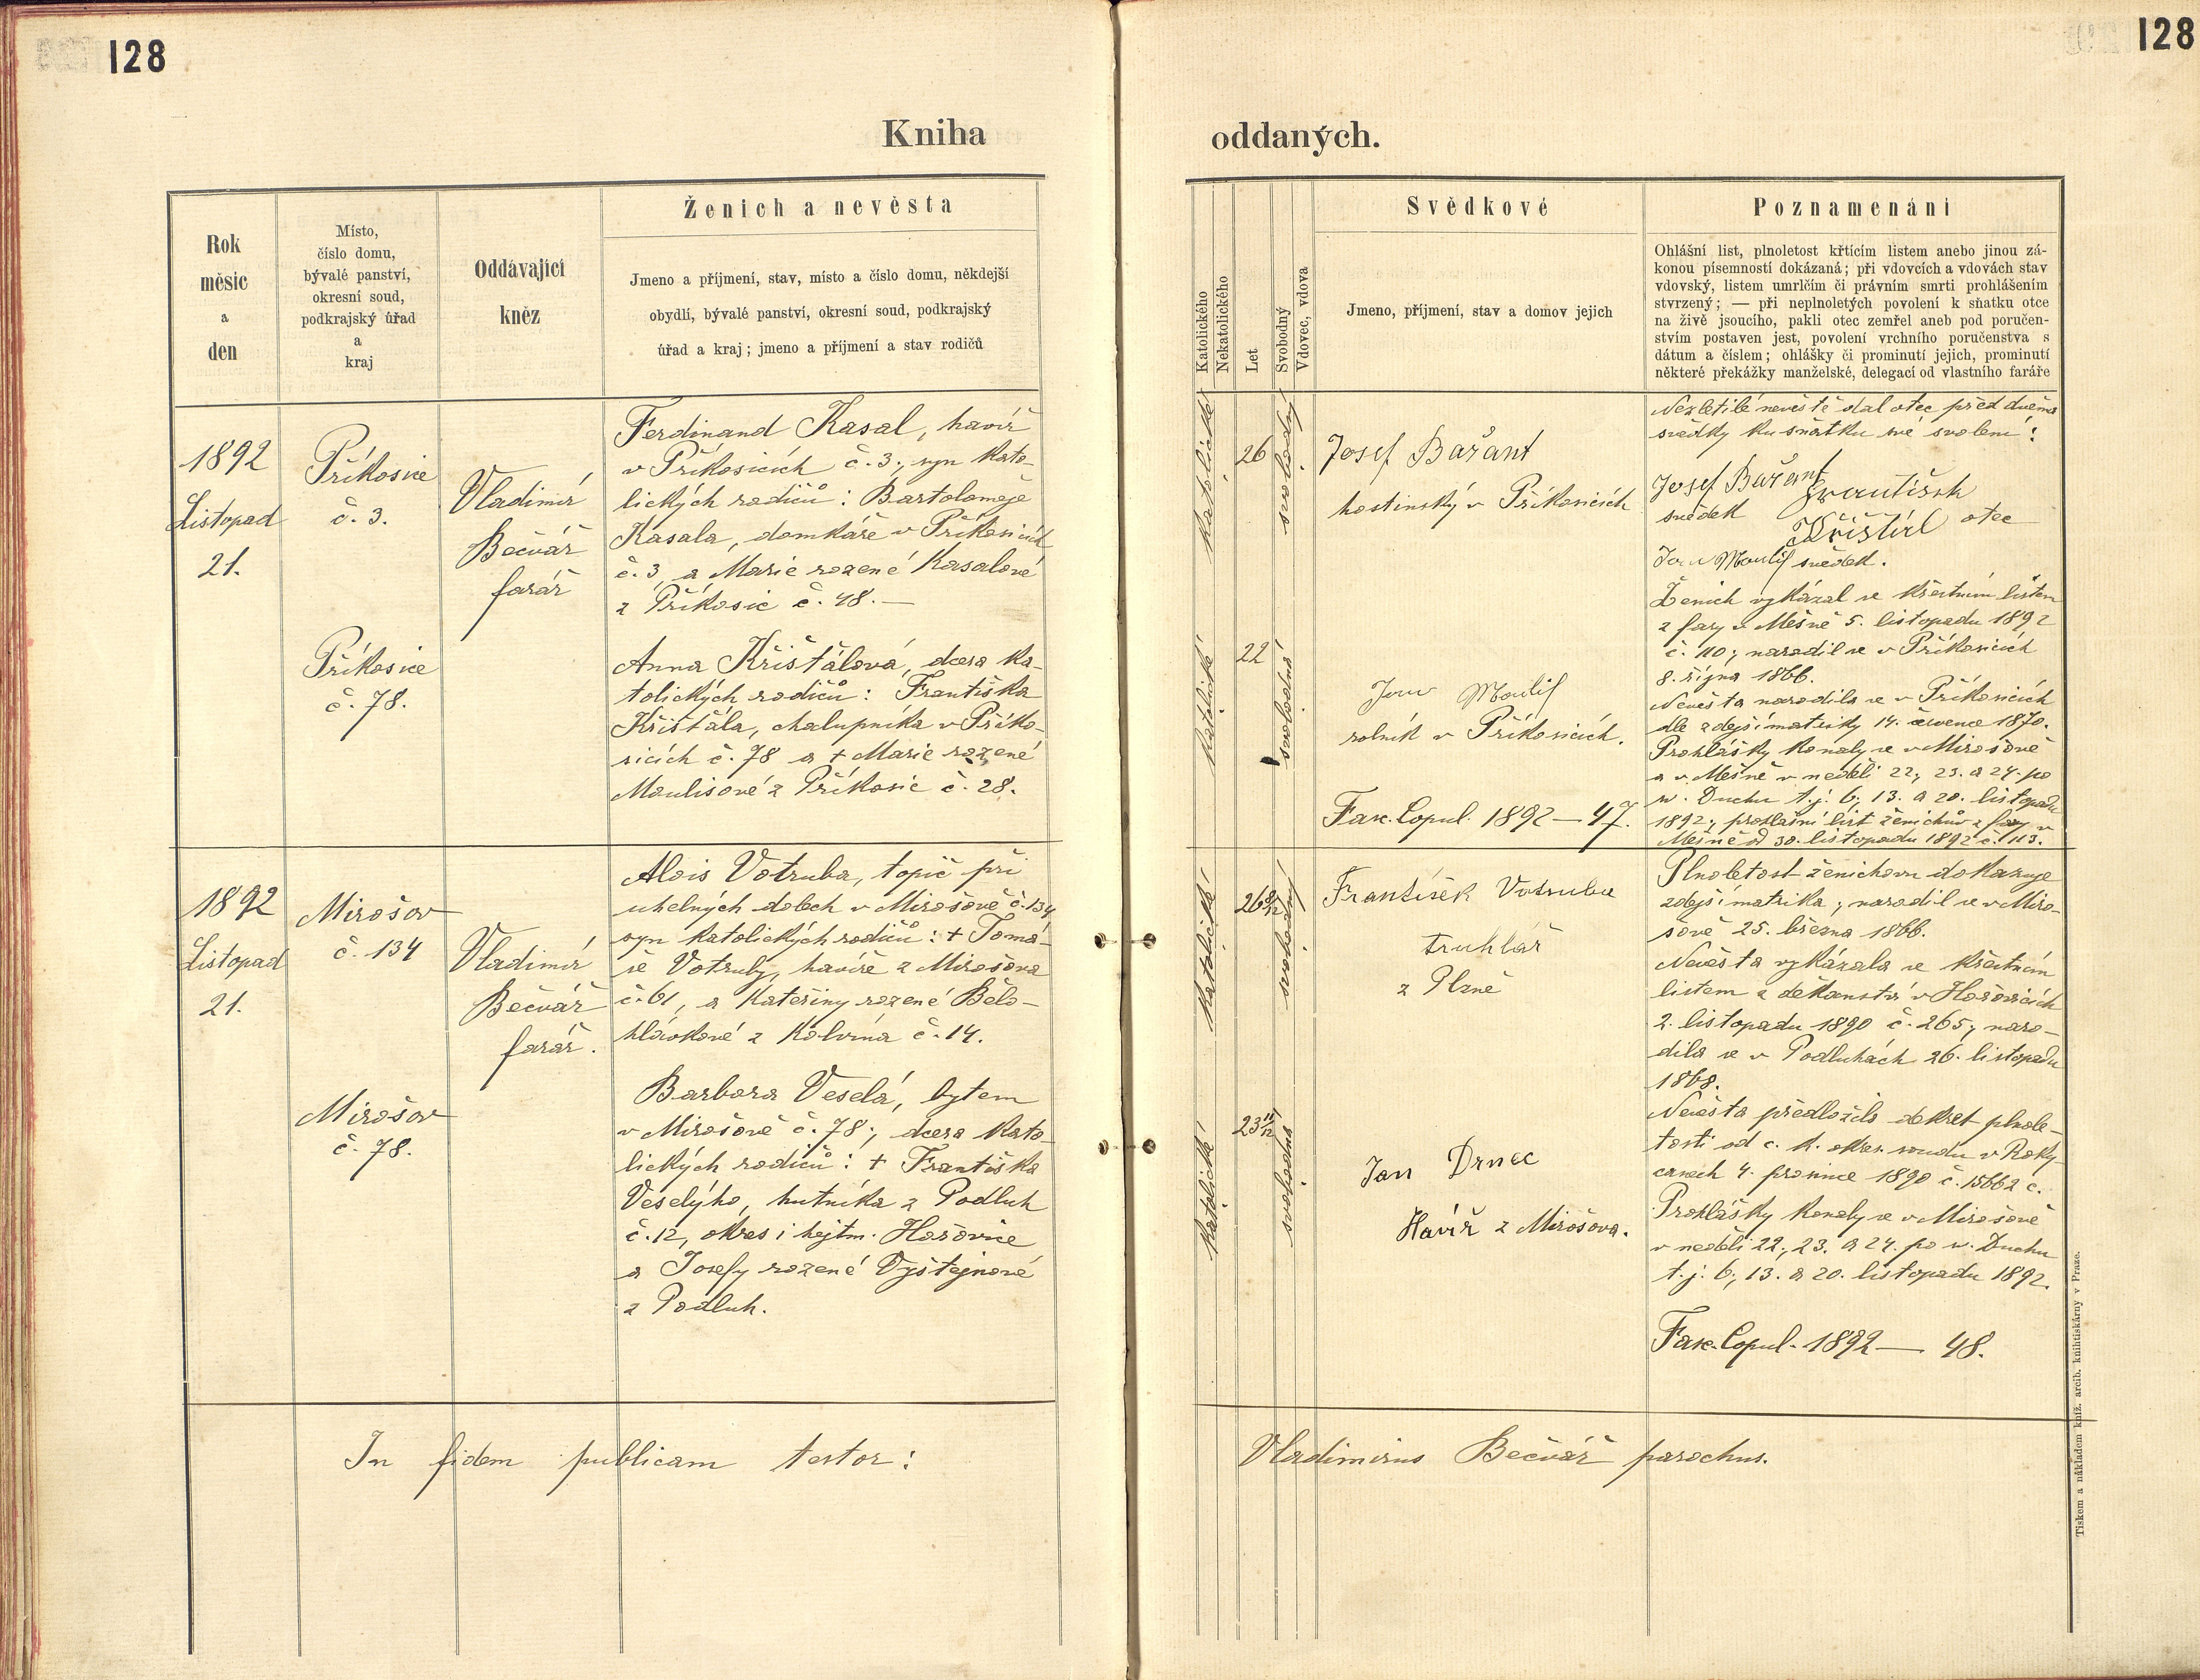 128
128
Kniha
oddaných.
Rok
měsic
a
den
Místo,
číslo domu,
bývalé panství,
okresní soud,
podkrajský úřad
a
kraj
Oddávající
kněz
Ženich a nevěsta
Jmeno a příjmení, stav, místo a číslo domu, někdejší
obydlí, bývalé panství, okresní soud, podkrajský
úřad a kraj; jmeno a příjmení a stav rodičů
Katolického
Nekatolického
Let
Svobodný
Vdovec, vdova
Svědkové
Jmeno, příjmení, stav a domov jejich
Poznamenání
Ohlášní list, plnoletost křtícím listem anebo jinou zá-
konou písemností dokázaná; při vdovcích a vdovách stav
vdovský, listem umrlčím či právním smrti prohlášením
stvrzený; — při neplnoletých povolení k sňatku otce
na živě jsoucího, pakli otec zemřel aneb pod poručen-
stvím postaven jest, povolení vrchního poručenstva s
dátum a číslem; ohlášky či prominutí jejich, prominutí
některé překážky manželské, delegací od vlastního faráře
1892
Listopad
21.
Příkosice
č. 3.
Vladimír
Bečvář
farář
Ferdinand Kasal, havíř
v Příkosicích č. 3., syn kato-
lických rodičů: Bartoloměje
Kasala, domkáře v Příkosicích
č. 3 a Marie rozené Kasalové
z Příkosic č. 48. —
Příkosice
č. 78.
Anna Křišťálová, dcera ka-
tolických rodičů: Františka
Křišťála, chalupníka v Příko-
sicích č. 78 a + Marie rozené
Moulisové z Příkosic č. 28.
katolické
26
svobodný
Josef Bařant
hostinský v Příkosicích
katolické
22
svobodná
Jan Moulis
rolník v Příkosicích.
Fasc. Copul. 1892 — 47.
Nezletilé nevěstě dal otec před dvěma
svědky ku sňatku své svolení:
Josef Bařant František
svědek Křišťál otec
Jan Moulis svědek.
Ženich vykázal se křestním listem
z fary v Mešně 5. listopadu 1892
č. 110; narodil se v Příkosicích
8. října 1866.
Nevěsta narodila se v Příkosicích
dle zdejší matriky 14. července 1870.
Prohlášky konaly se v Mirošově
a v Mešně v neděli 22., 23. a 24. po
sv. Duchu t. j. 6., 13. a 20. listopadu
1892; prohlašní list ženichův z fary v
Mešně od 30. listopadu 1892 č. 113.
1892
Listopad
21.
Mirošov
č. 134
Vladimír
Bečvář
farář.
Alois Votruba, topič při
uhelných dolech v Mirošově č. 134
syn katolických rodičů: + Tomá-
še Votruby, havíře z Mirošova
č. 61, a Kateřiny rozené Bělo-
hlávkové z Kolvína č. 14.
Mirošov
č. 78.
Barbora Veselá, bytem
v Mirošově č. 78; dcera kato-
lických rodičů: + Františka
Veselýho, hutníka z Podluh
č. 12, okres i hejtm. Hořovice
a Josefy rozené Vyštejnové
z Podluh.
katolické
26 8/12
svobodný
František Votruba
truhlář
z Plzně
katolické
23 11/12
svobodná
Jan Drnec
Havíř z Mirošova.
Plnoletost ženichovu dokazuje
zdejší matrika; narodil se v Miro-
šově 25. března 1866.
Nevěsta vykázala se křestním
listem z děkanství v Hořovicích
2. listopadu 1890 č. 265; naro-
dila se v Podluhách 26. listopadu
1868.
Nevěsta předložila dekret plnole-
tosti od c. k. okres. soudu v Roky-
canech 4. prosince 1890 č. 15662 c.
Prohlášky konaly se v Mirošově
v neděli 22., 23. a 24. po sv. Duchu
t. j. 6., 13. a 20. listopadu 1892.
Fasc. Copul. 1892 — 48.
In fidem publicam testor:
Vladimirus Bečvář parochus.
Tiskem a nákladem kníž. arcib. knihtiskárny v Praze.